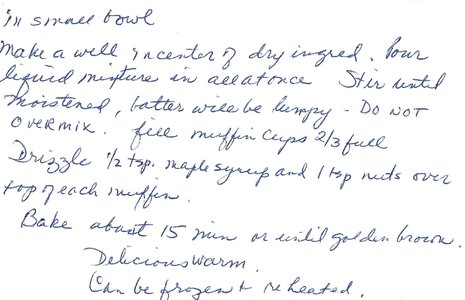 in small bowl
Make a well in center of dry ingred. Pour
liquid mixture in all at once Stir until
moistened, batter will be lumpy - DO NOT
OVERMIX. fill muffin cups 2/3 full
Drizzle 1/2 tsp. maple syrup and 1 tsp nuts over
top of each muffin.
Bake about 15 min or until golden brown.
Delicious warm.
Can be frozen + reheated.